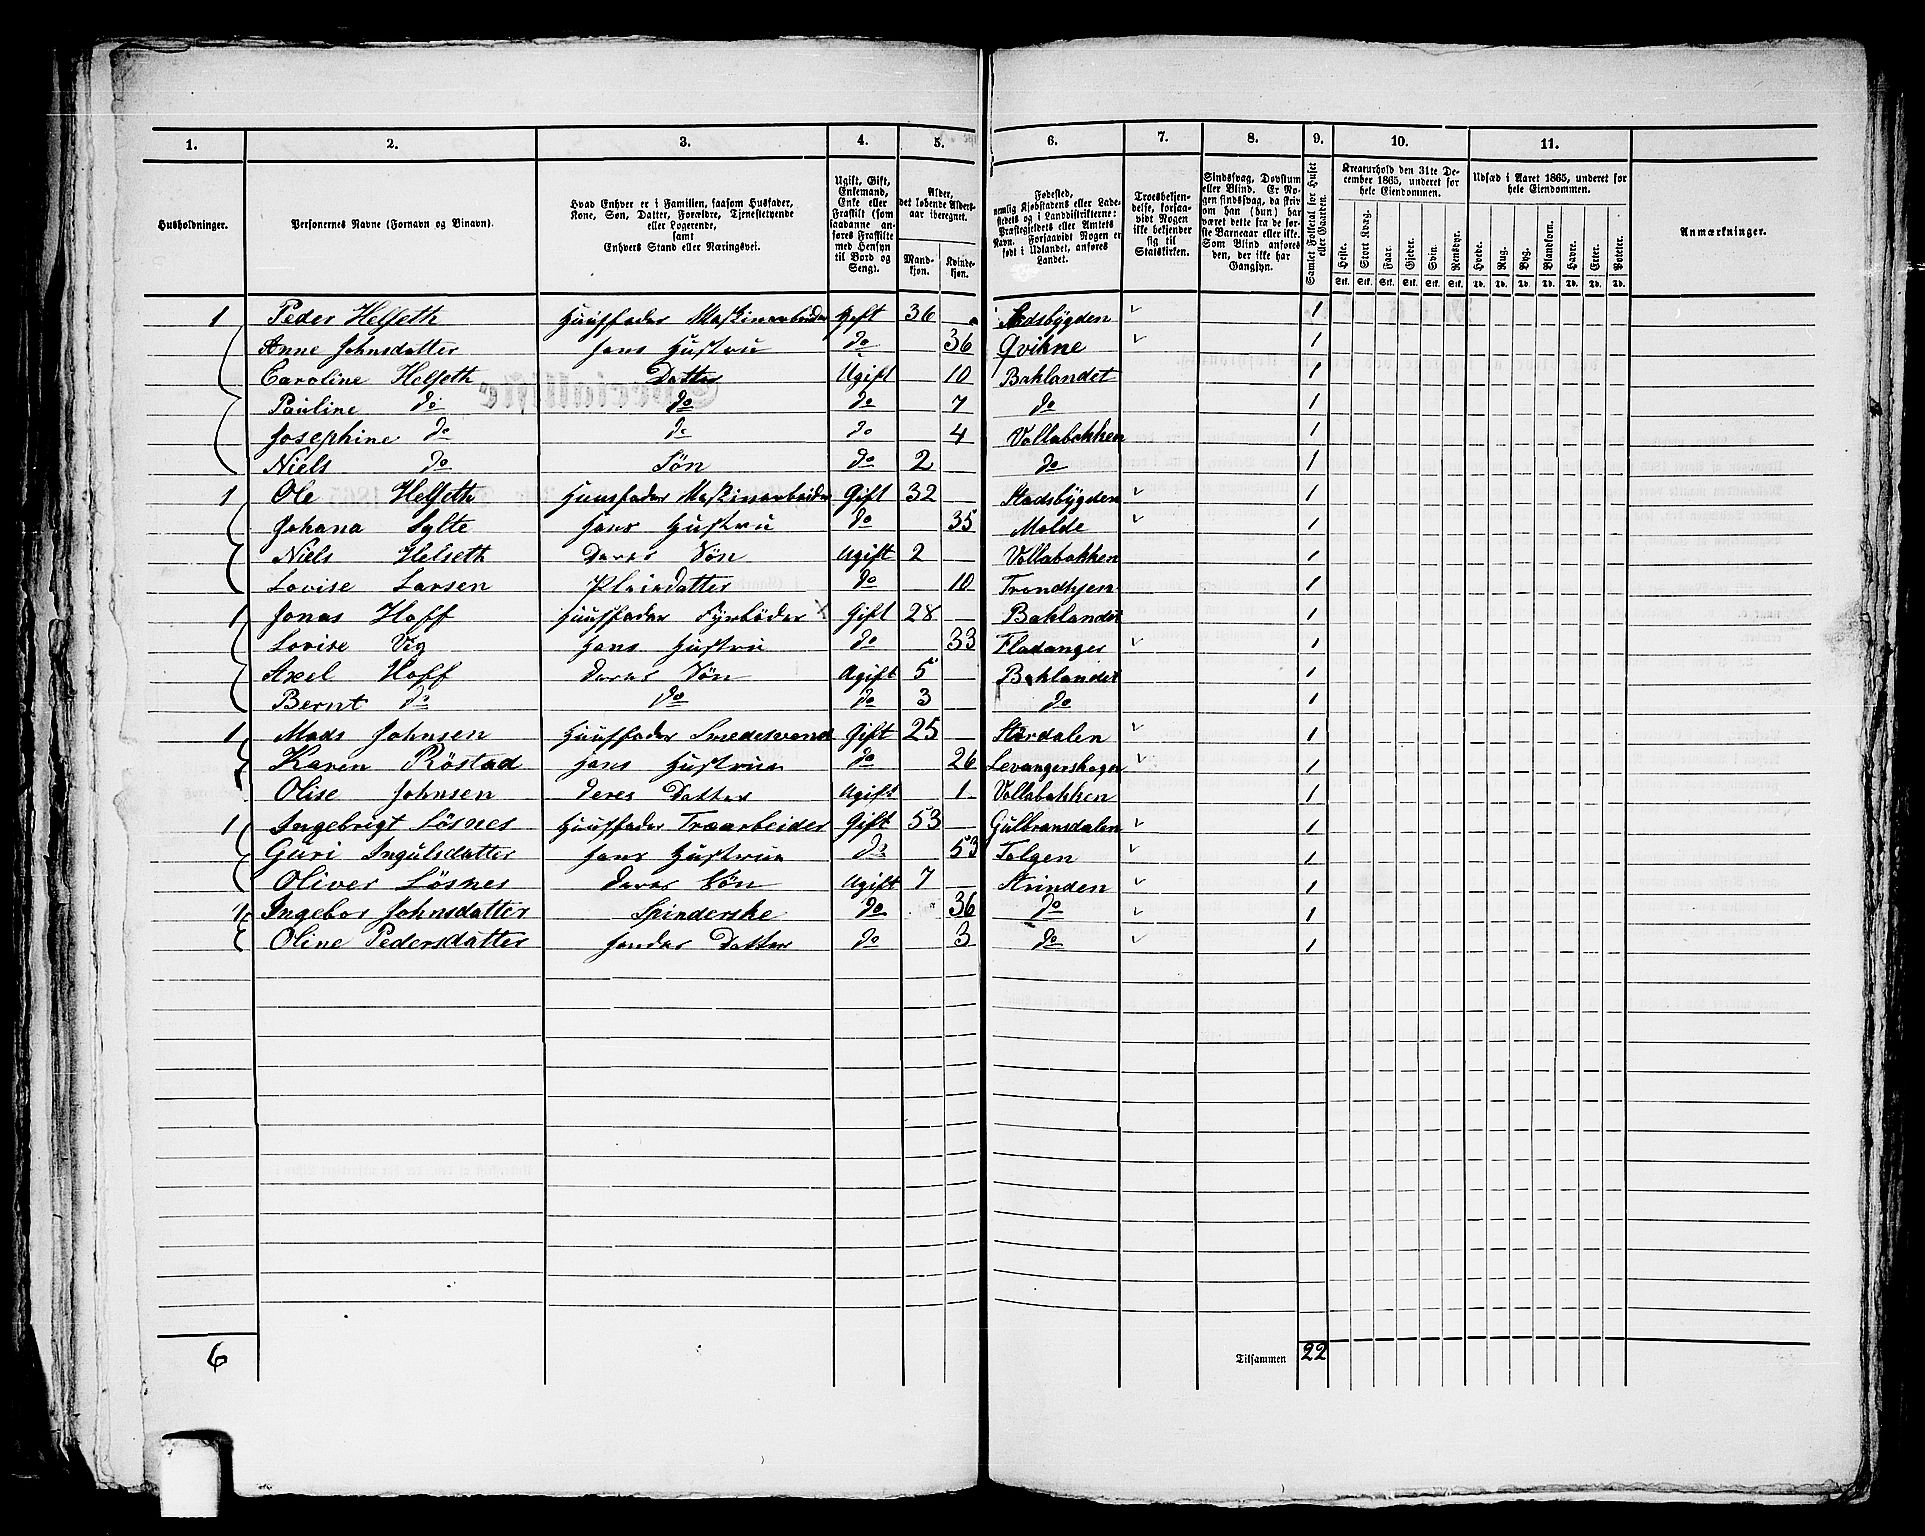 1. 2. 3. 4. 5. 6. 7. 8. 9. 10. 11.
Husholdninger.
Personernes Navne (Fornavn og Binavn).
Hvad Enhver er i Familien, saasom Husfader,
Kone, Søn, Datter, Forældre, Tjenestetyende
eller Logerende,
samt
Enhvers Stand eller Næringsvei.
Ugift, Gift,
Enkemand,
Enke eller
Fraskilt (som
saadanne an-
føres Fraskilte
med Hensyn
til Bord og
Seng).
Alder,
det løbende Alders-
aar iberegnet.
Mand-
kjøn.
Kvinde-
kjøn.
Fødested,
nemlig Kjøbstadens eller Lade-
stedets og i Landdistrikterne:
Præstegjeldets eller Amtets
Navn. Forsaavidt Nogen er
født i Udlandet, anføres
Landet.
Troesbekjen-
delse, forsaa-
vidt Nogen
ikke bekjender
sig til
Statskirken.
Sindssvag, Døvstum
eller Blind. Er No-
gen sindssvag, da skriv
om han (hun) har
været dette fra de før-
ste Barneaar eller ikke.
Som Blind anføres
den, der ikke har
Gangsyn.
Samlet Folketal for Huset
eller Gaarden.
Kreaturhold den 31te De-
cember 1865, underet for
hele Eiendommen.
Heste. Stort Kvæg. Faar. Gjeder. Svin. Rensdyr.
Stk. Stk. Stk. Stk. Stk. Stk.
Udsæd i Aaret 1865, underet for
hele Eiendommen.
Hvede. Rug. Byg. Blandkorn. Havre. Erter. Poteter.
Td. Td. Td. Td. Td. Td. Td.
Anmærkninger.
1 Peder Helseth Huusfader Maskinarbeider Gift 36 Stadsbygden 1
Anne Johnsdatter hans Hustru do 36 Qvikne 1
Caroline Helseth Datter Ugift 10 Baklandet 1
Pauline do do do 7 do 1
Josephine do do do 4 Vollabakken 1
Niels do Søn do 2 do 1
1 Ole Helseth Huusfader Maskinarbeider Gift 32 Stadsbygden 1
Johana Sylte hans Hustru do 35 Molde 1
Niels Helseth Deres Søn Ugift 2 Vollabakken 1
Lovise Larsen Pleiedatter do 10 Trondhjem 1
1 Jonas Hoff Huusfader Fyrbøder Gift 28 Baklandet 1
Lovise Vig hans Hustru do 33 Fladanger 1
Axel Hoff deres Søn Ugift 5 Baklandet 1
Bernt do do do 3 do 1
1 Mads Johnsen Huusfader Smedesvend Gift 25 Størdalen 1
Karen Röstad hans Hustrue do 26 Levangerskogen 1
Olise Johnsen deres Datter Ugift 1 Vollabakken 1
1 Ingebrigt Lösnes Huusfader Træarbeider Gift 53 Gulbransdalen 1
Guri Ingulsdatter hans Hustrue do 53 Tolgen 1
Oliver Lösnes deres Søn Ugift 7 Strinden 1
1 Ingebor Johnsdatter Spinderske do 36 do 1
Oline Pedersdatter hendes Datter do 3 do 1
6 Tilsammen 22